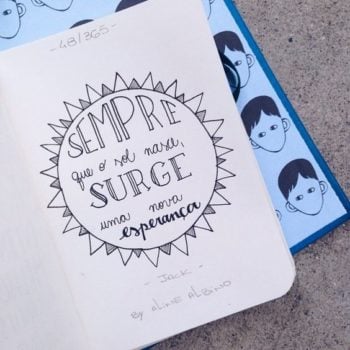 -48/365-
SEMPRE
que o sol nasce,
SURGE
uma nova
esperança
- Jack -
BY ALINE ALBINO